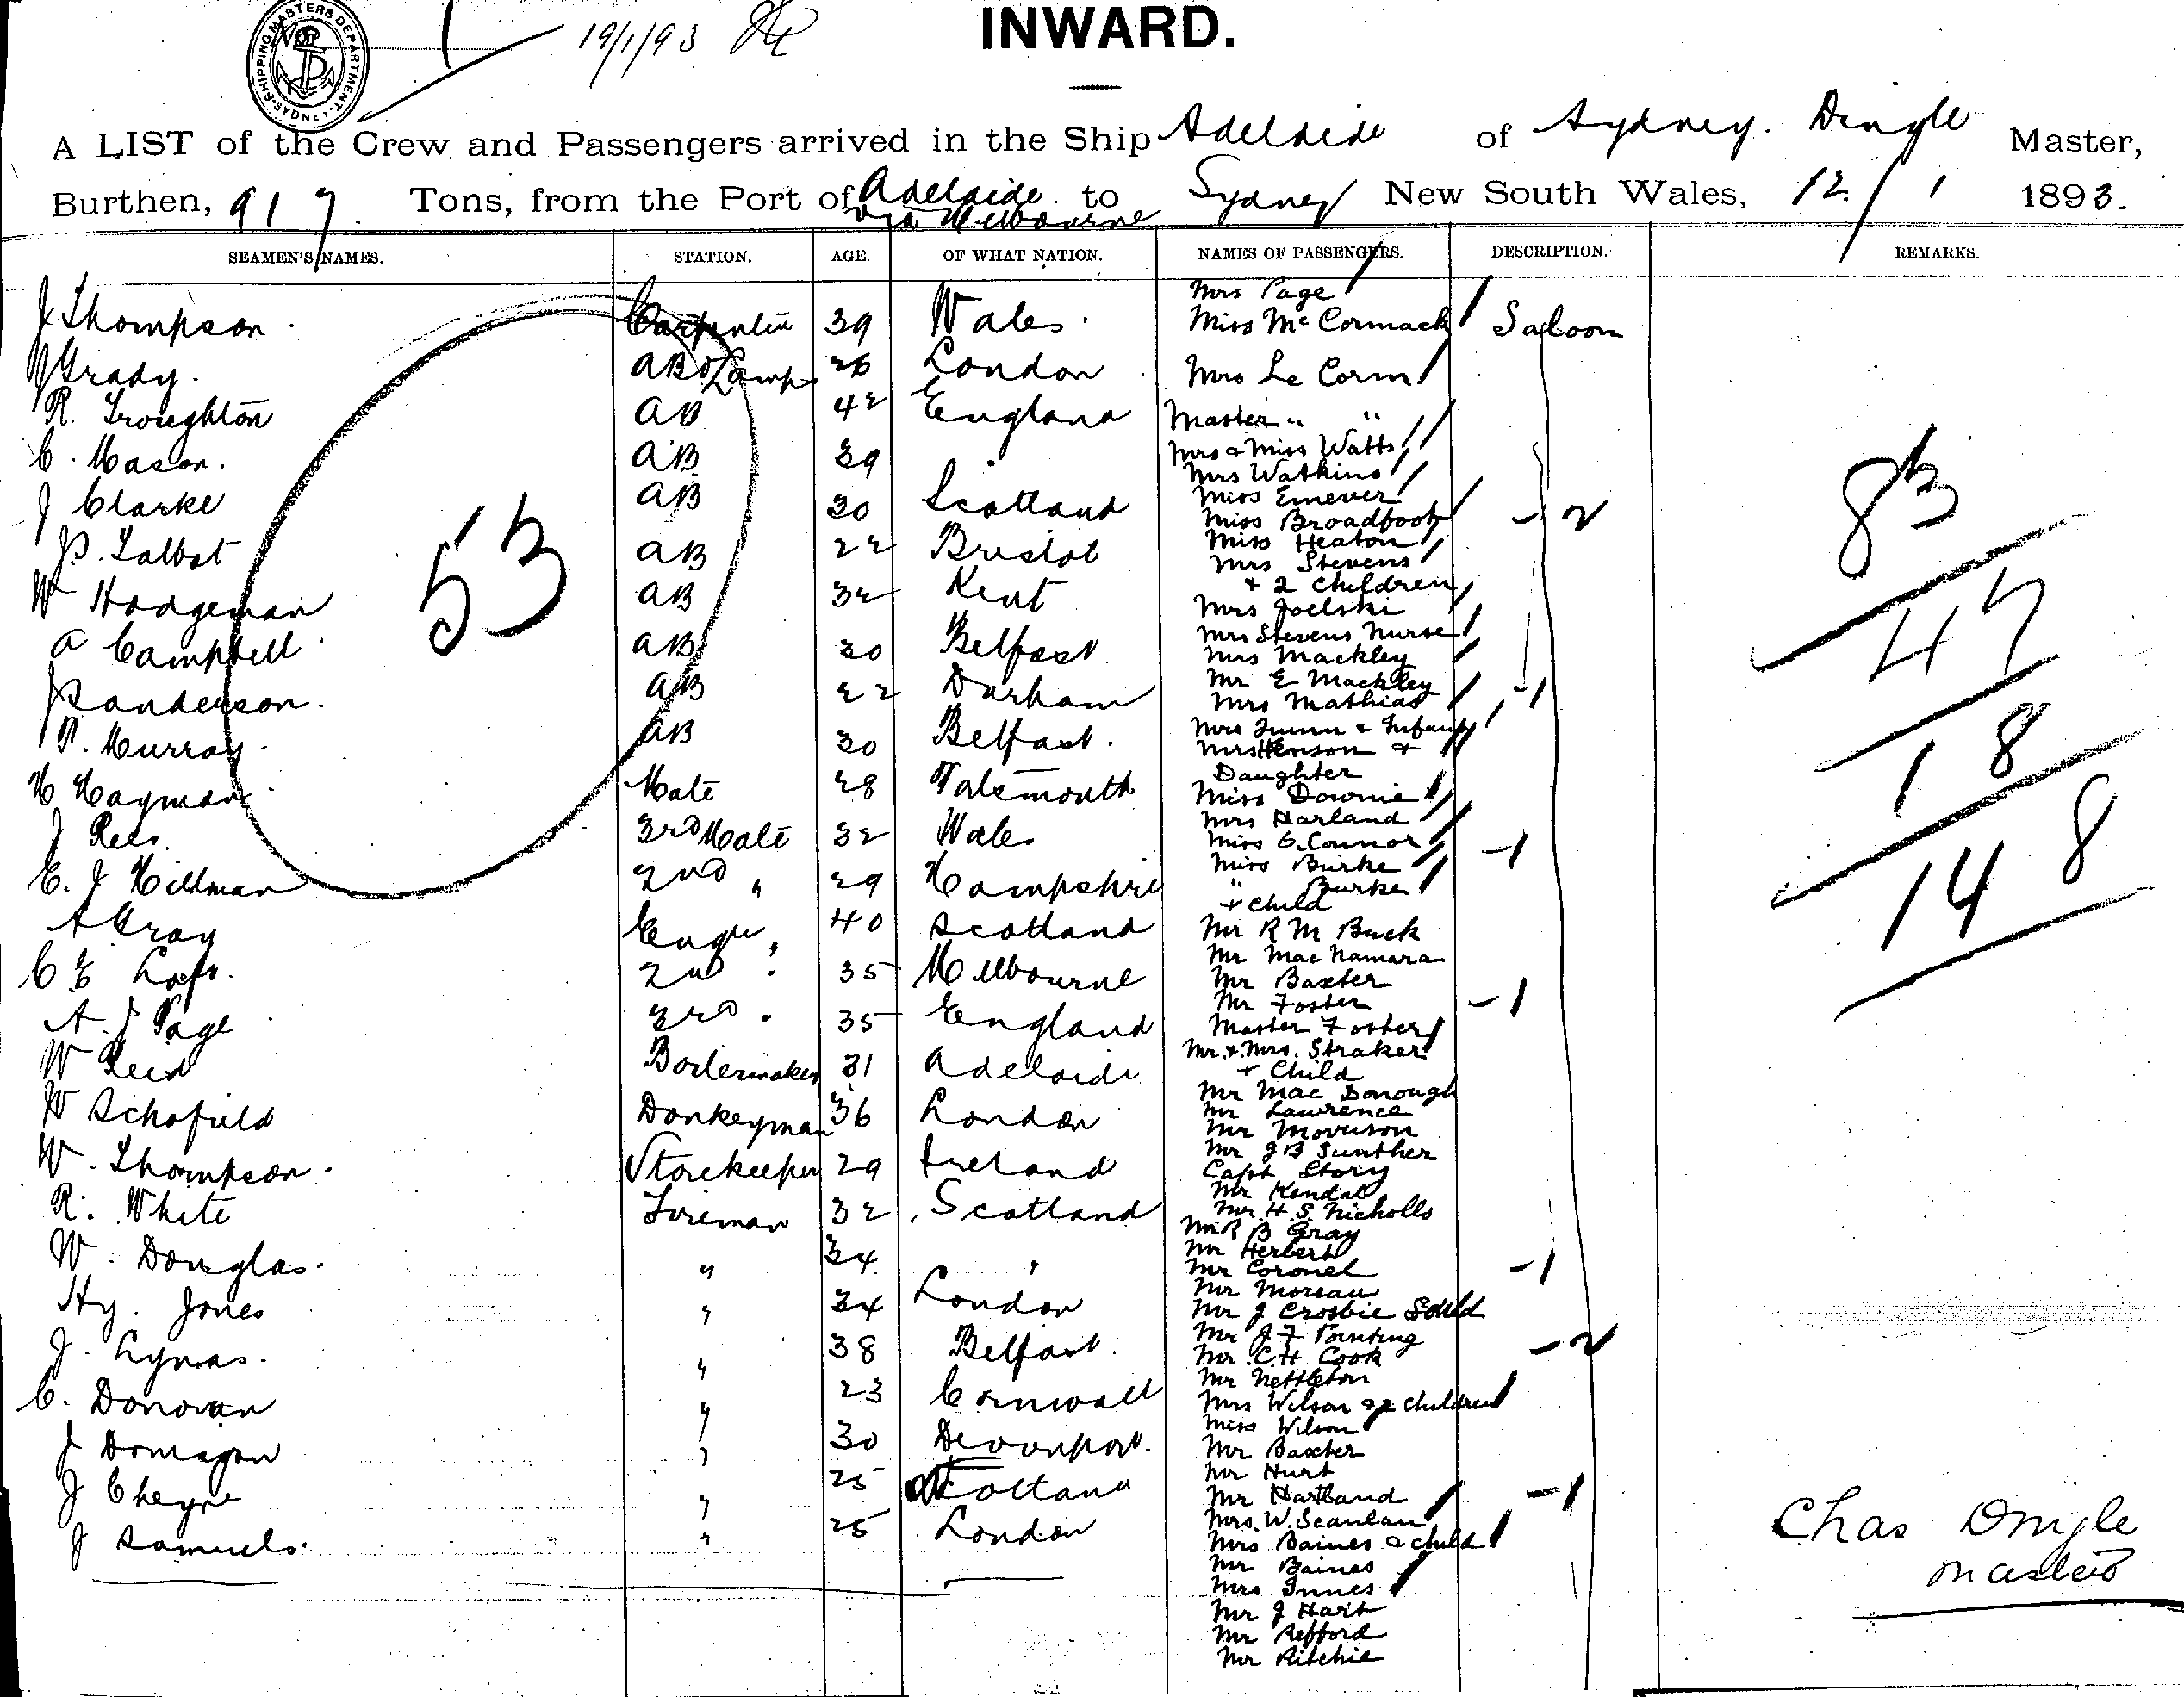 SHIPPING MASTERS DEPARTMENT SYDNEY
19/1/93
INWARD.
A LIST of the Crew and Passengers arrived in the Ship Adelaide of Sydney. Dingle Master,
Burthen, 917 Tons, from the Port of Adelaide to Sydney New South Wales, 12/1 1893.
via Melbourne
SEAMEN'S NAMES. STATION. AGE. OF WHAT NATION. NAMES OF PASSENGERS. DESCRIPTION. REMARKS.
J Thompson Carpenter 39 Wales
Grady AB & Lamps 26 London
R. Troughton AB 42 England
C. Mason AB 39 "
J Clarke AB 30 Scotland
J.P. Talbot AB 22 Bristol
W Hodgeman AB 32 Kent
A Campbell AB 20 Belfast
J Sanderson AB 22 Durham
P. Murray AB 30 Belfast
H Hayman Mate 48 Falsmouth
J Rees 3rd Mate 32 Wales
C. J Hillman 2nd " 29 Hampshire
A Gray Engr 40 Scotland
C E 2nd " 35 Melbourne
A. J Page 3rd " 35 England
W Reid Boilermaker 31 Adelaide
W Schofield Donkeyman 36 London
W. Thompson Storekeeper 29 Ireland
R. White Fireman 32 Scotland
W. Douglas " 34 "
Hy. Jones " 34 London
J. Lynas " 38 Belfast
C. Donovan " 23 Cornwall
J " 30 Devonport
J Cheyne " 25 Scotland
J Samuels " 25 London
53
Mrs Page
Miss McCormack Saloon
Mrs Le Corm
Master " "
Mrs & Miss Watts
Mrs Watkins
Miss Emever
Miss Broadfoot - 2
Miss Heaton
Mrs Stevens
+ 2 Children
Mrs Joelski
Mrs Stevens Nurse
Mrs Mackley
Mr E Mackley
Mrs Mathias - 1
Mrs Quinn & Infant
Mrs Henson &
Daughter
Miss Downie
Mrs Harland
Miss O.Connor - 1
Miss Burke
" Burke
+ child
Mr R M Buck
Mr Mac Namara
Mr Baxter
Mr Foster - 1
Master Foster
Mr. & Mrs. Straker
+ Child
Mr Mac Donough
Mr Lawrence
Mr Morrison
Mr J B Gunther
Capt Story
Mr Kendal
Mr H. S. Nicholls
Mr R B Gray
Mr Herbert
Mr Coronel - 1
Mr Moreau
Mr J Crosbie Gould
Mr J F Pointing
Mr C.H Cook - 2
Mr Nettleton
Mrs Wilson & 2 children
Miss Wilson
Mr Baxter
Mr Hurt
Mr Hartland - 1
Mrs. W. Scanlan
Mrs Baines & child
Mr Baines
Mrs Innes
Mr J Hart
Mr Refford
Mr Ritchie
83
47
18
148
Chas Dingle
Master